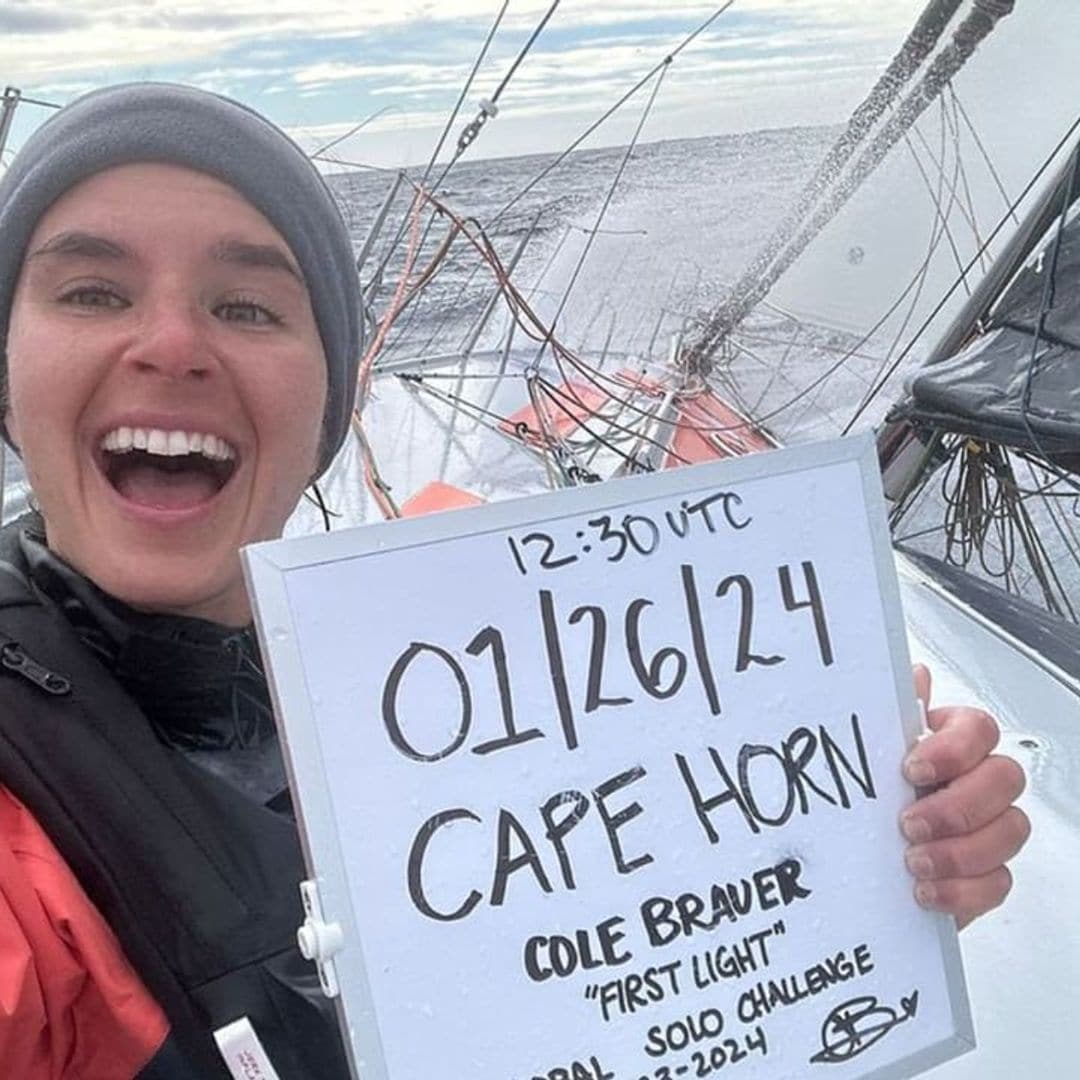 12:30 UTC
01/26/24
CAPE HORN
COLE BRAUER
"FIRST LIGHT"
SOLO CHALLENGE
-2024